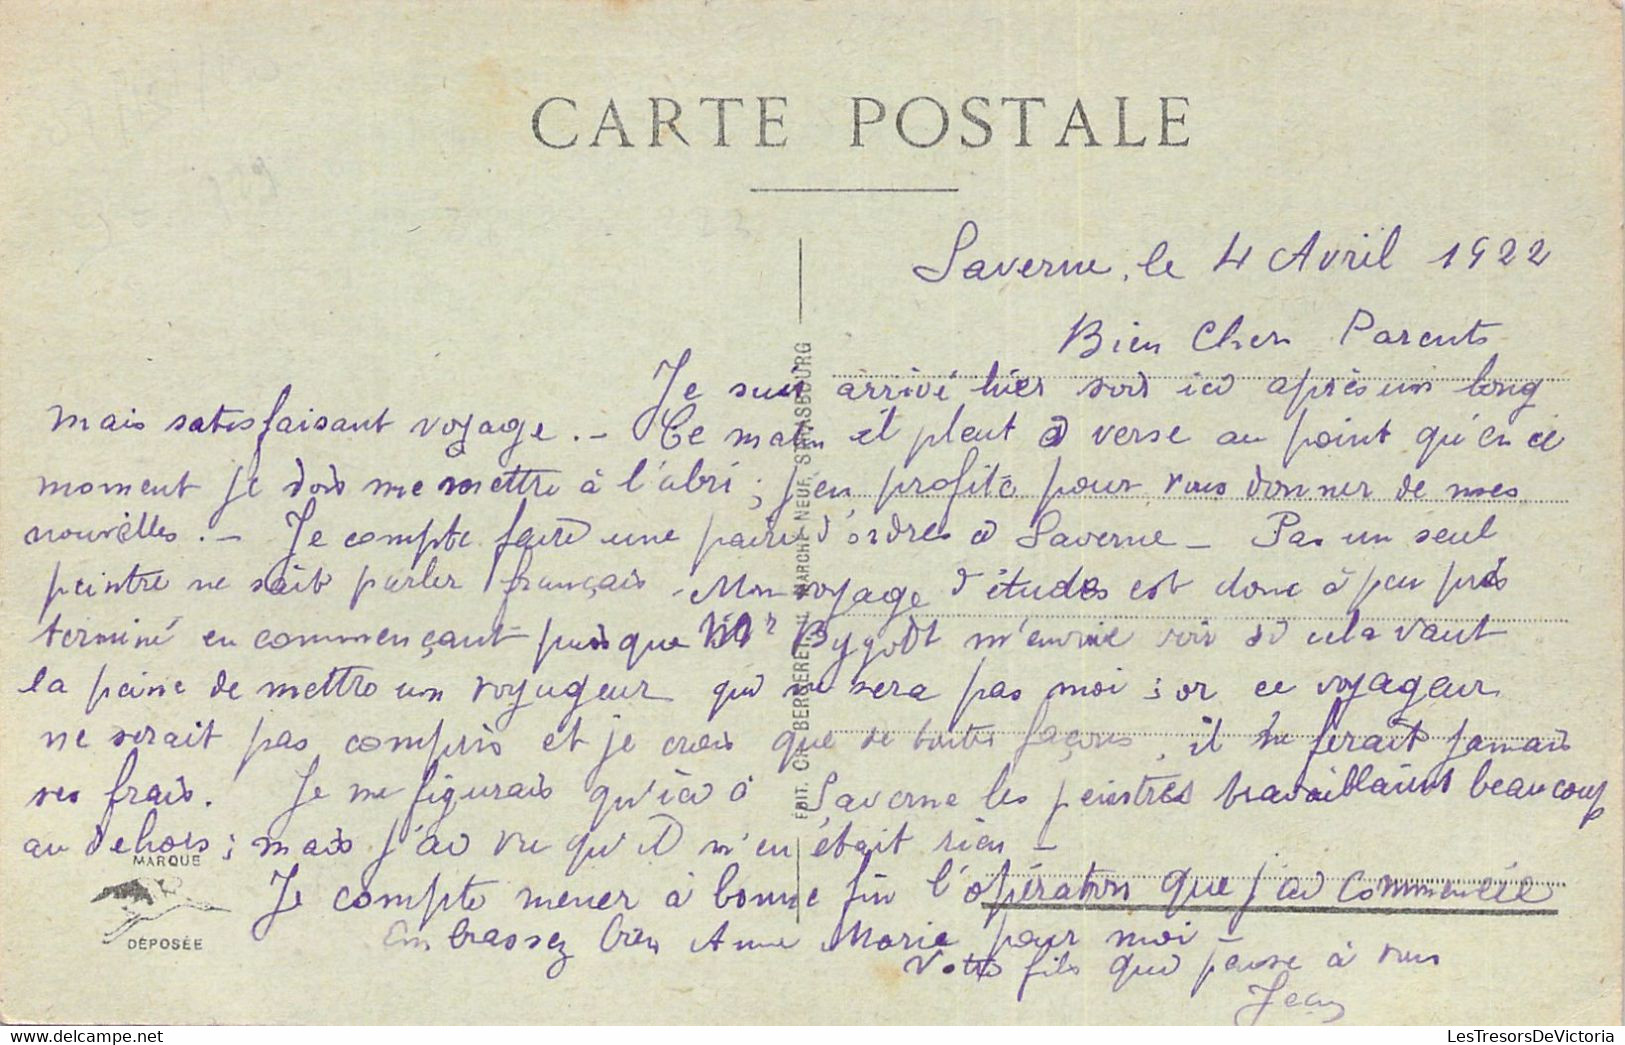 CARTE POSTALE
Saverne, le 4 Avril 1922
Bien Chers Parents
Je suis arrivé hier soir ici après un long
mais satisfaisant voyage. - Ce matin il pleut à verse au point qu'en ce
moment je dois me mettre à l'abri ; j'en profite pour vous donner de mes
nouvelles. - Je compte faire une paire d'ordres à Saverne - Pas un seul
peintre ne sait parler français. Mon voyage d'études est donc à peu près
terminé en commençant puisque Mr m'envoie voir si cela vaut
la peine de mettre un voyageur qui ne sera pas moi ; or ce voyageur
ne serait pas compris et je crois que de toutes façons, il ne ferait jamais
ses frais. Je me figurais qu'ici à Saverne les peintres travaillaient beaucoup
au dehors ; mais j'ai vu qu'il n'en était rien -
Je compte mener à bonne fin l'opération que j'ai commencée
Embrassez bien Anne Marie pour moi -
Votre fils qui pense à vous
Jean
EDIT. CH. BERGERET, MARCHÉ NEUF, STRASBOURG
MARQUE
DÉPOSÉE
LesTresorsDeVictoria.com